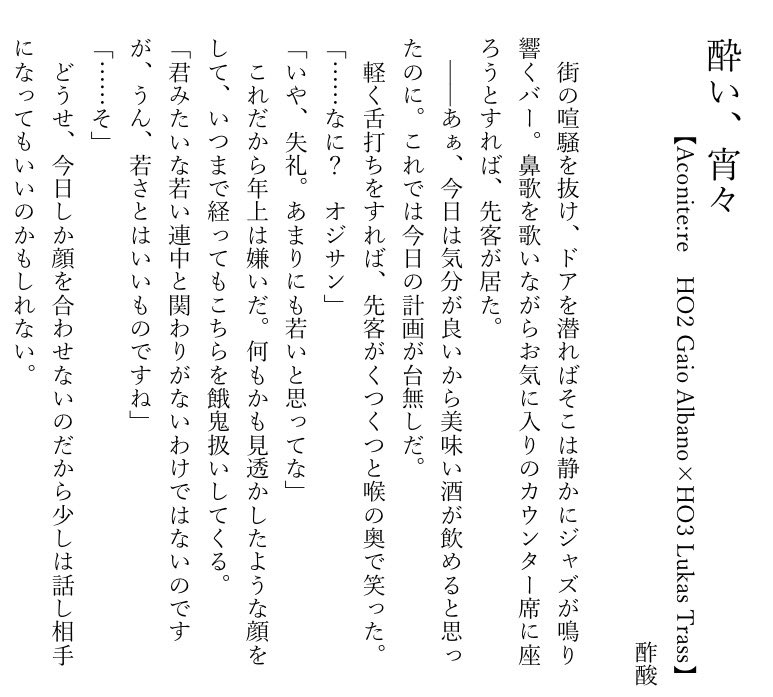 酔い、宵々
【Aconite:re　HO2 Gaio Albano×HO3 Lukas Trass】
酢酸
　街の喧騒を抜け、ドアを潜ればそこは静かにジャズが鳴り
響くバー。鼻歌を歌いながらお気に入りのカウンター席に座
ろうとすれば、先客が居た。
　――あぁ、今日は気分が良いから美味い酒が飲めると思っ
たのに。これでは今日の計画が台無しだ。
　軽く舌打ちをすれば、先客がくつくつと喉の奥で笑った。
「……なに？　オジサン」
「いや、失礼。あまりにも若いと思ってな」
　これだから年上は嫌いだ。何もかも見透かしたような顔を
して、いつまで経ってもこちらを餓鬼扱いしてくる。
「君みたいな若い連中と関わりがないわけではないのです
が、うん、若さとはいいものですね」
「……そ」
　どうせ、今日しか顔を合わせないのだから少しは話し相手
になってもいいのかもしれない。